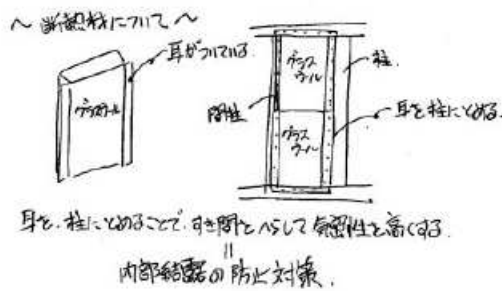 〜 断熱材について 〜
耳がついている
グラスウール
グラス
ウール
柱
間柱
耳を柱にとめる
グラス
ウール
耳を、柱にとめることで、すき間をへらして気密性を高くする
=
内部結露の防止対策.